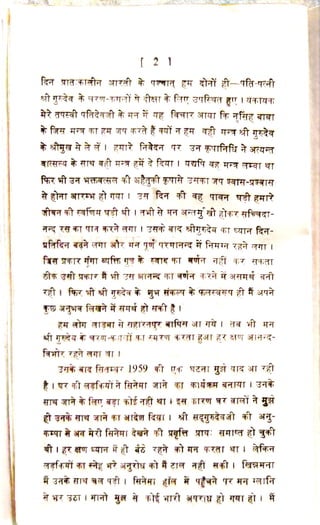 [ 2 ]
दिन प्रातःकालीन आरती के पश्चात् हम दोनों ही—पति-पत्नी
श्री गुरुदेव के चरण-कमलों में दीक्षा के लिए उपस्थित हुए । यकायक
मेरे तपस्वी पतिदेवजी के मन में यह विचार आया कि नृसिंह बाबा
के जिस मन्त्र का हम जप करते हैं क्यों न हम वही मन्त्र श्री गुरुदेव
के श्रीमुख से ले लें । हमारे निवेदन पर उन कृपानिधि ने अत्यन्त
वात्सल्य के साथ वही मन्त्र हमें दे दिया । यद्यपि वह मन्त्र लम्बा था
फिर भी उन भक्तवत्सल की अहैतुकी कृपासे उसका जप श्वास-प्रश्वास
से होना आरम्भ हो गया । उस दिन की वह पावन घड़ी हमारे
जीवन की स्वर्णिम घड़ी थी । तभी से मन अन्तर्मुखी होकर सच्चिदा-
नन्द रस का पान करने लगा । उसके बाद श्रीगुरुदेव का ध्यान दिन-
प्रतिदिन बढ़ने लगा और मन पूर्ण परमानन्द में निमग्न रहने लगा ।
जिस प्रकार गूंगा व्यक्ति गुड़ के स्वाद का वर्णन नहीं कर सकता
ठीक उसी प्रकार मैं भी उस आनन्द का वर्णन करने में असमर्थ बनी
रही । फिर भी श्री गुरुदेव के शुभ संकल्प के फलस्वरूप ही मैं अपने
कुछ अनुभव लिखने में समर्थ हो सकी हूँ ।
हम लोग लाडवा से सहारनपुर वापिस आ गये । तब भी मन
श्री गुरुदेव के चरण-कमलों का स्मरण करता हुआ हर क्षण आनन्द-
विभोर रहने लगा था ।
उसके बाद सितम्बर 1959 की एक घटना मुझे याद आ रही
है । घर की लड़कियों ने सिनेमा जाने का कार्यक्रम बनाया । उनके
साथ जाने के लिए बड़ा कोई नहीं था । इस कारण घर वालों ने मुझे
ही उनके साथ जाने का आदेश दिया । श्री सद्गुरुदेवजी की अनु-
कम्पा से अब मेरी सिनेमा देखने की प्रवृत्ति प्रायः समाप्त हो चुकी
थी । हर क्षण ध्यान में ही बैठे रहने को मन करता था । लेकिन
लड़कियों का स्नेह भरे अनुरोध को मैं टाल नहीं सकी । खिन्नमना
मैं उनके साथ चल पड़ी । सिनेमा हॉल में पहुँचने पर मन ग्लानि
से भर उठा । मानो मुझ से कोई भारी अपराध हो गया हो । मैं